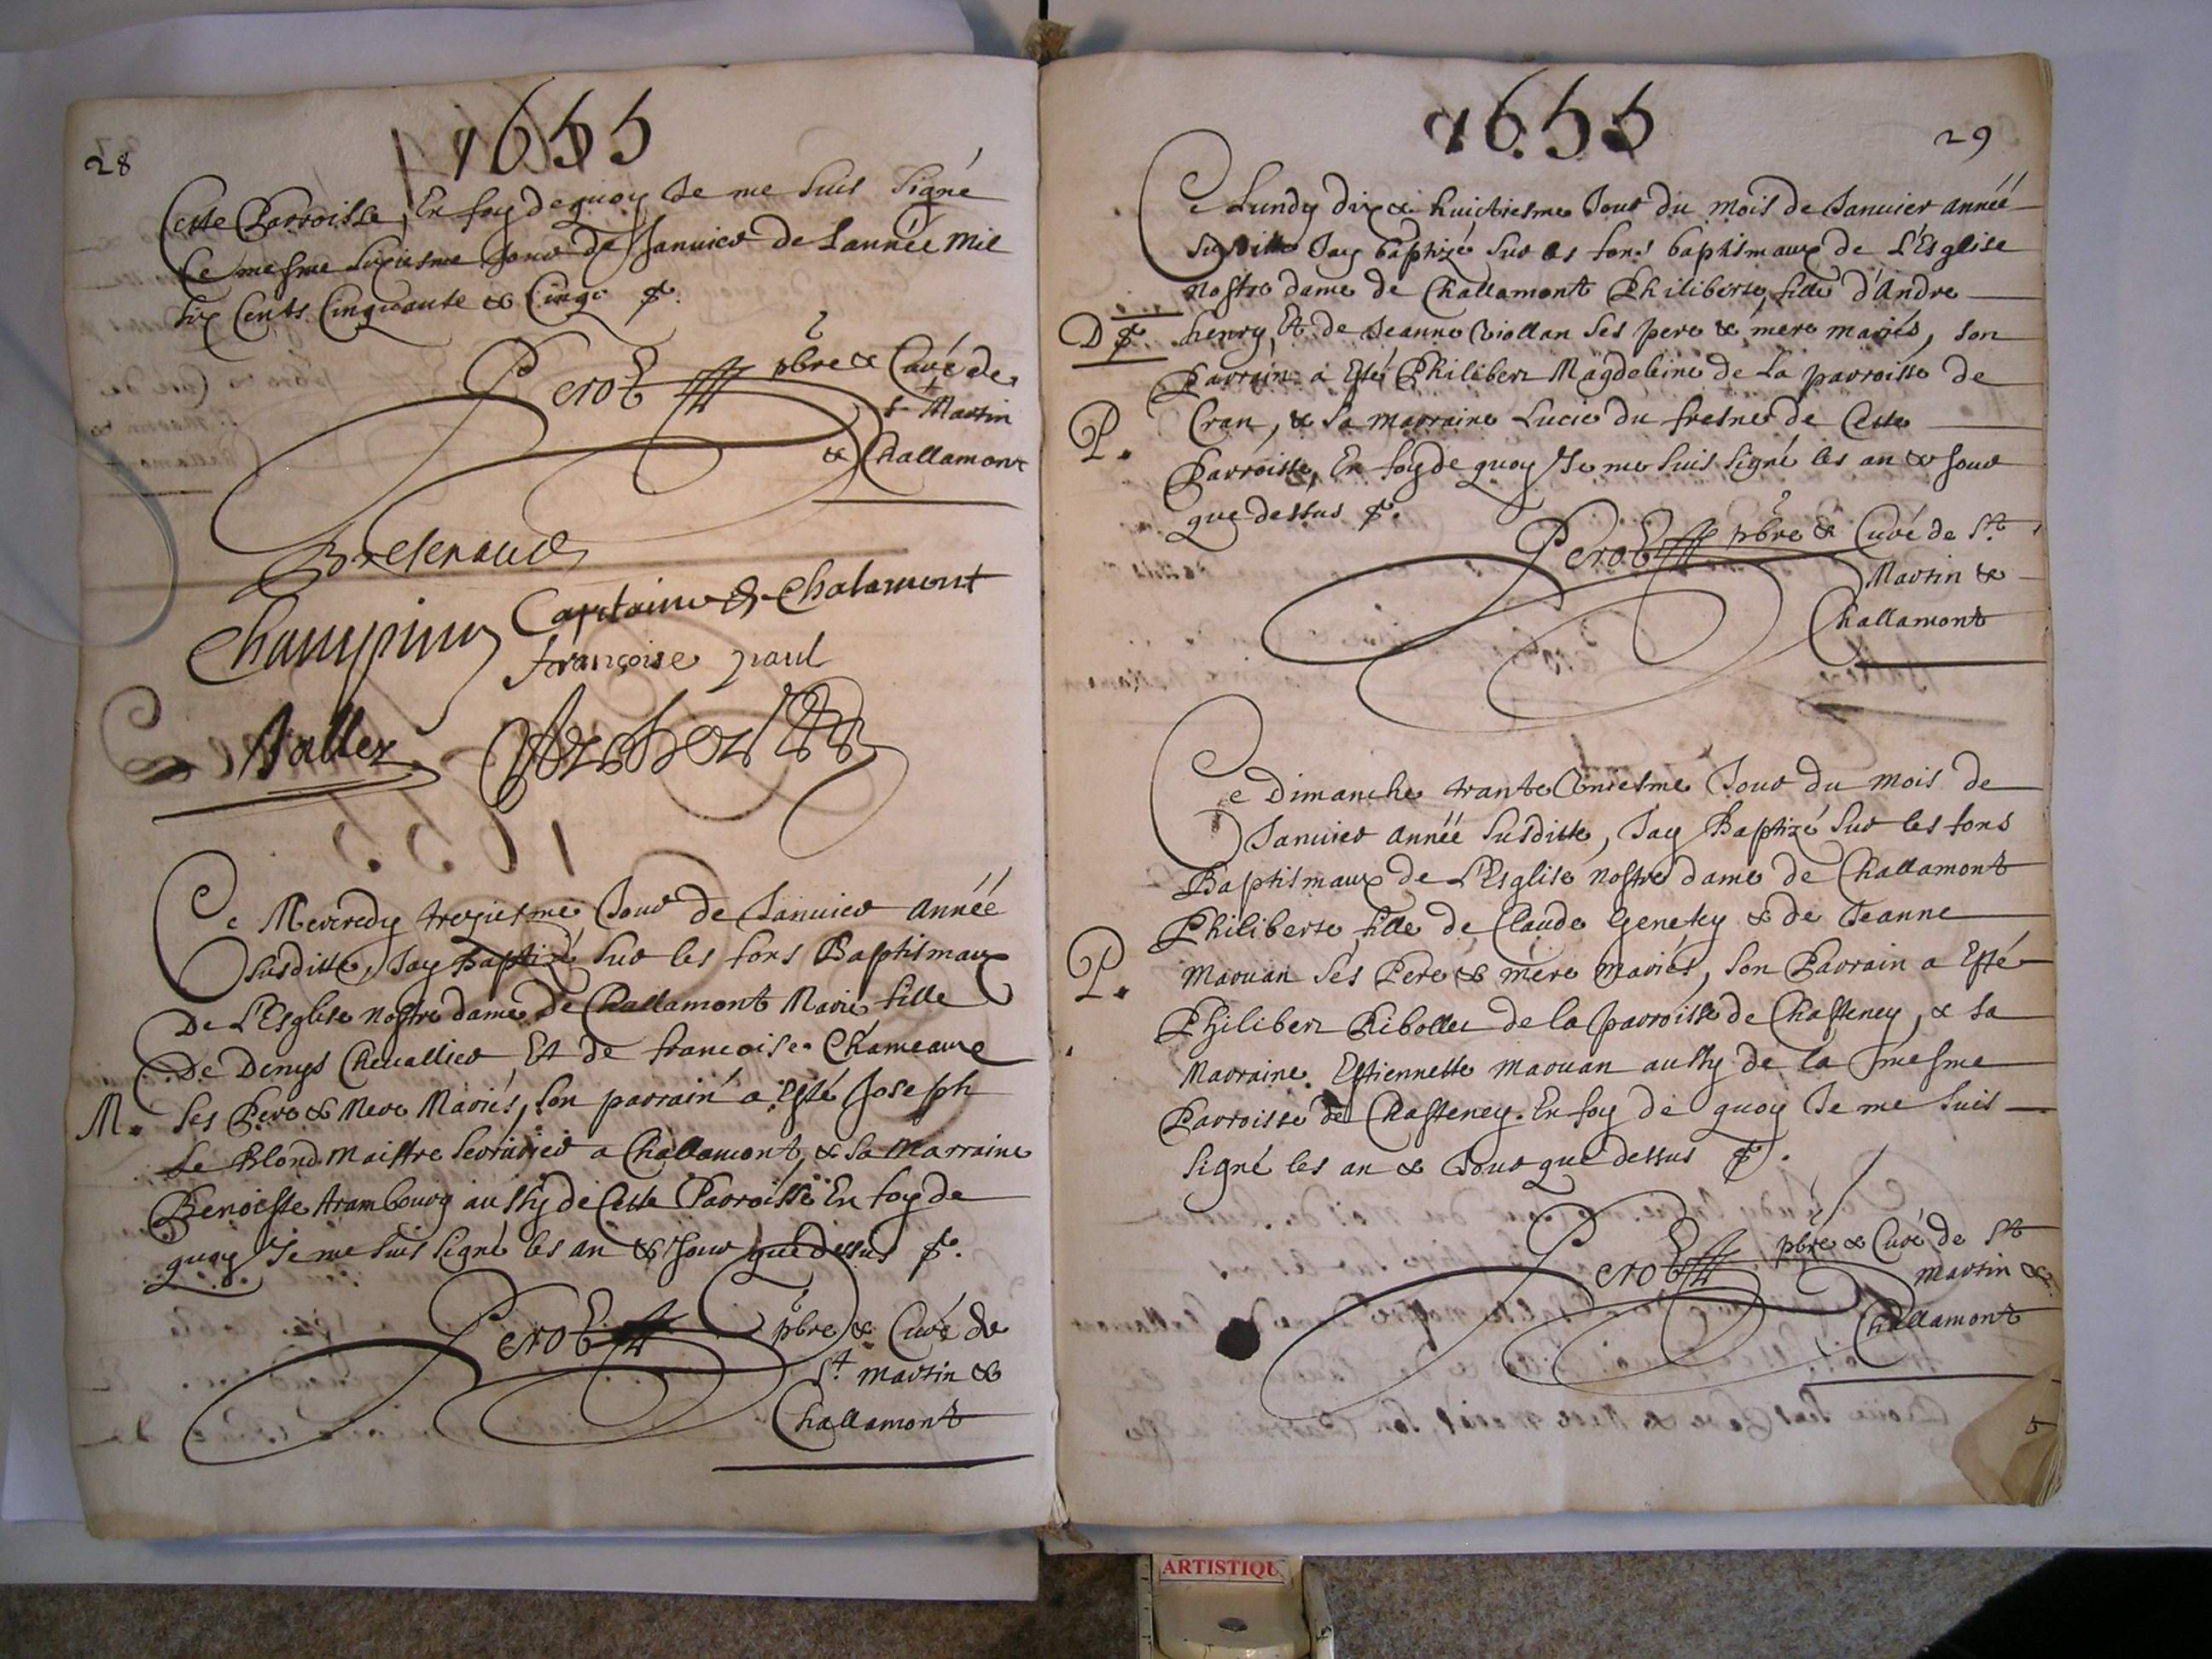 1655
28
Cette Parroisse, En foy de quoy Je me suis signé
Ce mesme sixiesme Jour de Janvier de L'année mil
six Cents Cinquante & Cinqz
Perot pbre & Curé de
St Martin
& Challamont
Capitaine de Chalamont
Françoise paul
Ce Mercredy treziesme Jour de Janvier Année
susditte, Jay Baptizé sur les fons Baptismaux
De L'Esglise nostre dame de Challamont Marie fille
De Denys Chevallier Et de francoise Chameaux
M. ses Pere & Mere Mariés, son parrain a Esté Joseph
Le Blond Maistre serrurier a Challamont, & sa Marraine
Benoiste Arambourg aussy de Cette Parroisse En foy de
quoy Je me suis signé les an & Jour que dessus
Perot pbre & Curé de
St Martin &
Challamont
1655
29
Ce Lundy dix & huictiesme Jour du mois de Janvier année
susditte Jay baptizé sur les fons baptismaux de L'Esglise
nostre dame de Challamont Philiberte, fille d'André
D henry, Et de Jeanne Viollan ses pere & mere mariés, son
Parrain a Esté Philibert Magdeleine de La parroisse de
P. Cran, & sa marraine Lucie du fresne de Cette
Parroisse, En foy de quoy Je me suis signé les an & Jour
que dessus
Perot pbre & Curé de St
Martin &
Challamont
Ce Dimanche trante Uniesme Jour du mois de
Janvier année susditte, Jay Baptizé sur les fons
Baptismaux de L'Esglise nostre dame de Challamont
Philiberte fille de Claude Genety & de Jeanne
P. Marvan ses Pere & mere mariés, son Parrain a Esté
Philibert Ribollet de la parroisse de Chasteney, & sa
Marraine Estiennette marvan aussy de la mesme
Parroisse de Chasteney. En foy de quoy Je me suis
signé les an & Jour que dessus
Perot pbre & Curé de St
martin &
Challamont
5
ARTISTIQU